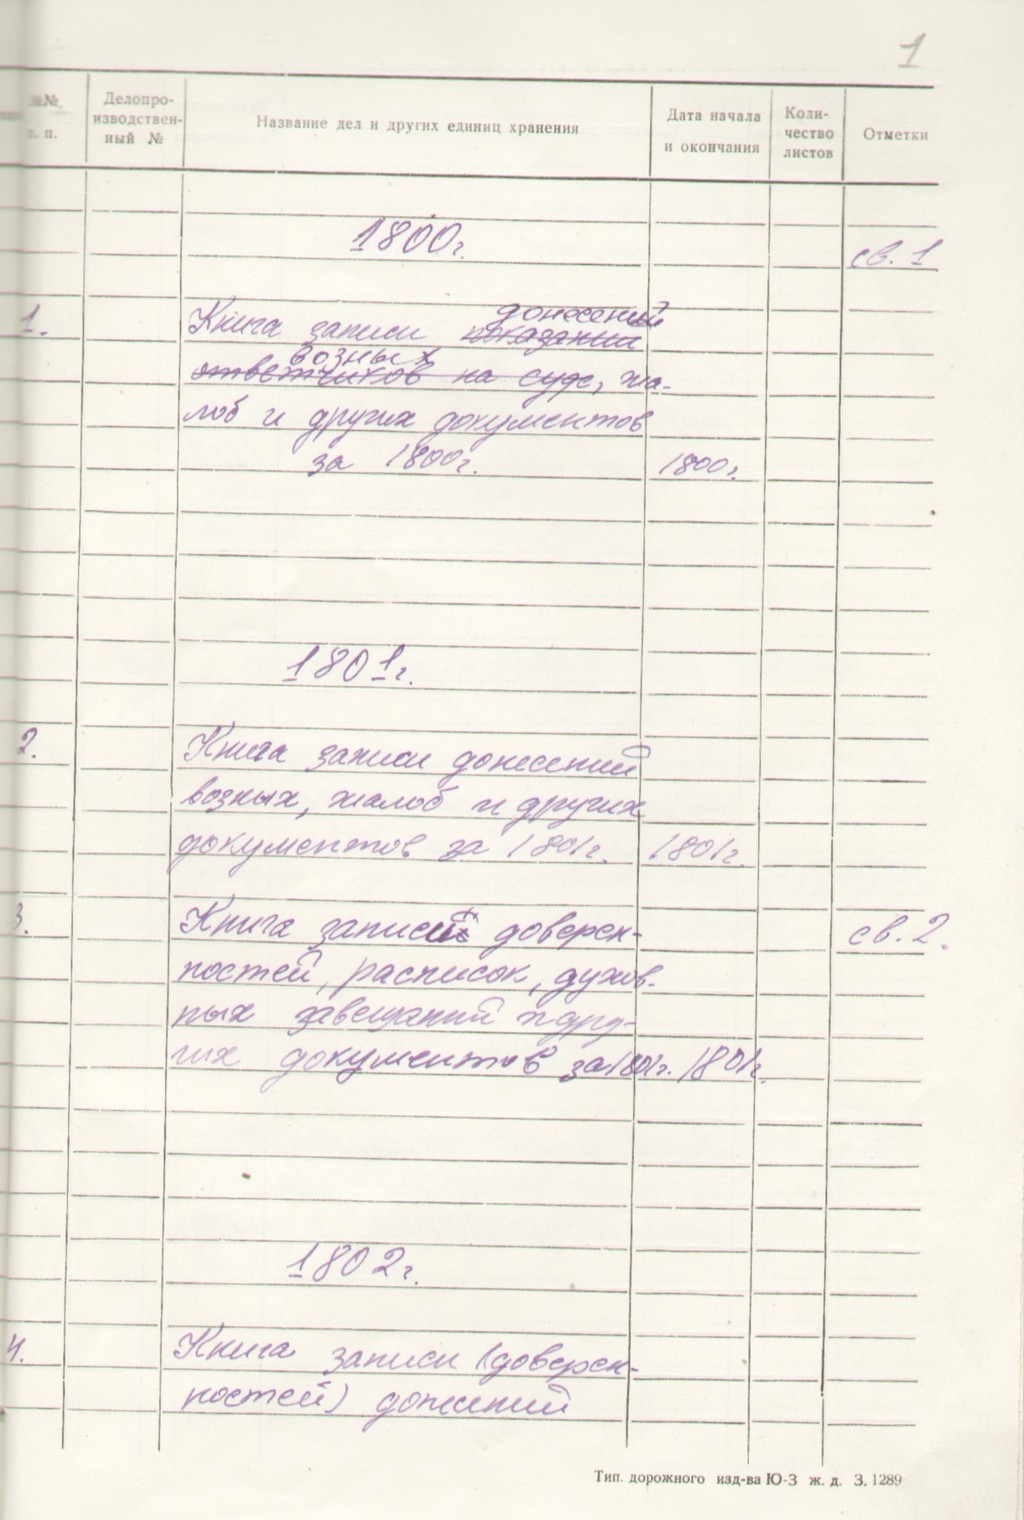 1
№№ п. п.
Делопро-
изводствен-
ный №
Название дел и других единиц хранения
Дата начала
и окончания
Коли-
чество
листов
Отметки
1800г.
св. 1
донесений
1. Книга записи показаний
возных
ответчиков на суде, жа-
лоб и других документов
за 1800г. 1800г.
1801г.
2. Книга записи донесений
возных, жалоб и других
документов за 1801г. 1801г.
3. Книга записи доверен- св. 2.
ностей, расписок, духов-
ных завещаний и дру-
гих документов за 1801г. 1801г.
1802г.
4. Книга записи (доверен-
ностей) донесений
Тип. дорожного изд-ва Ю-З ж. д. З. 1289